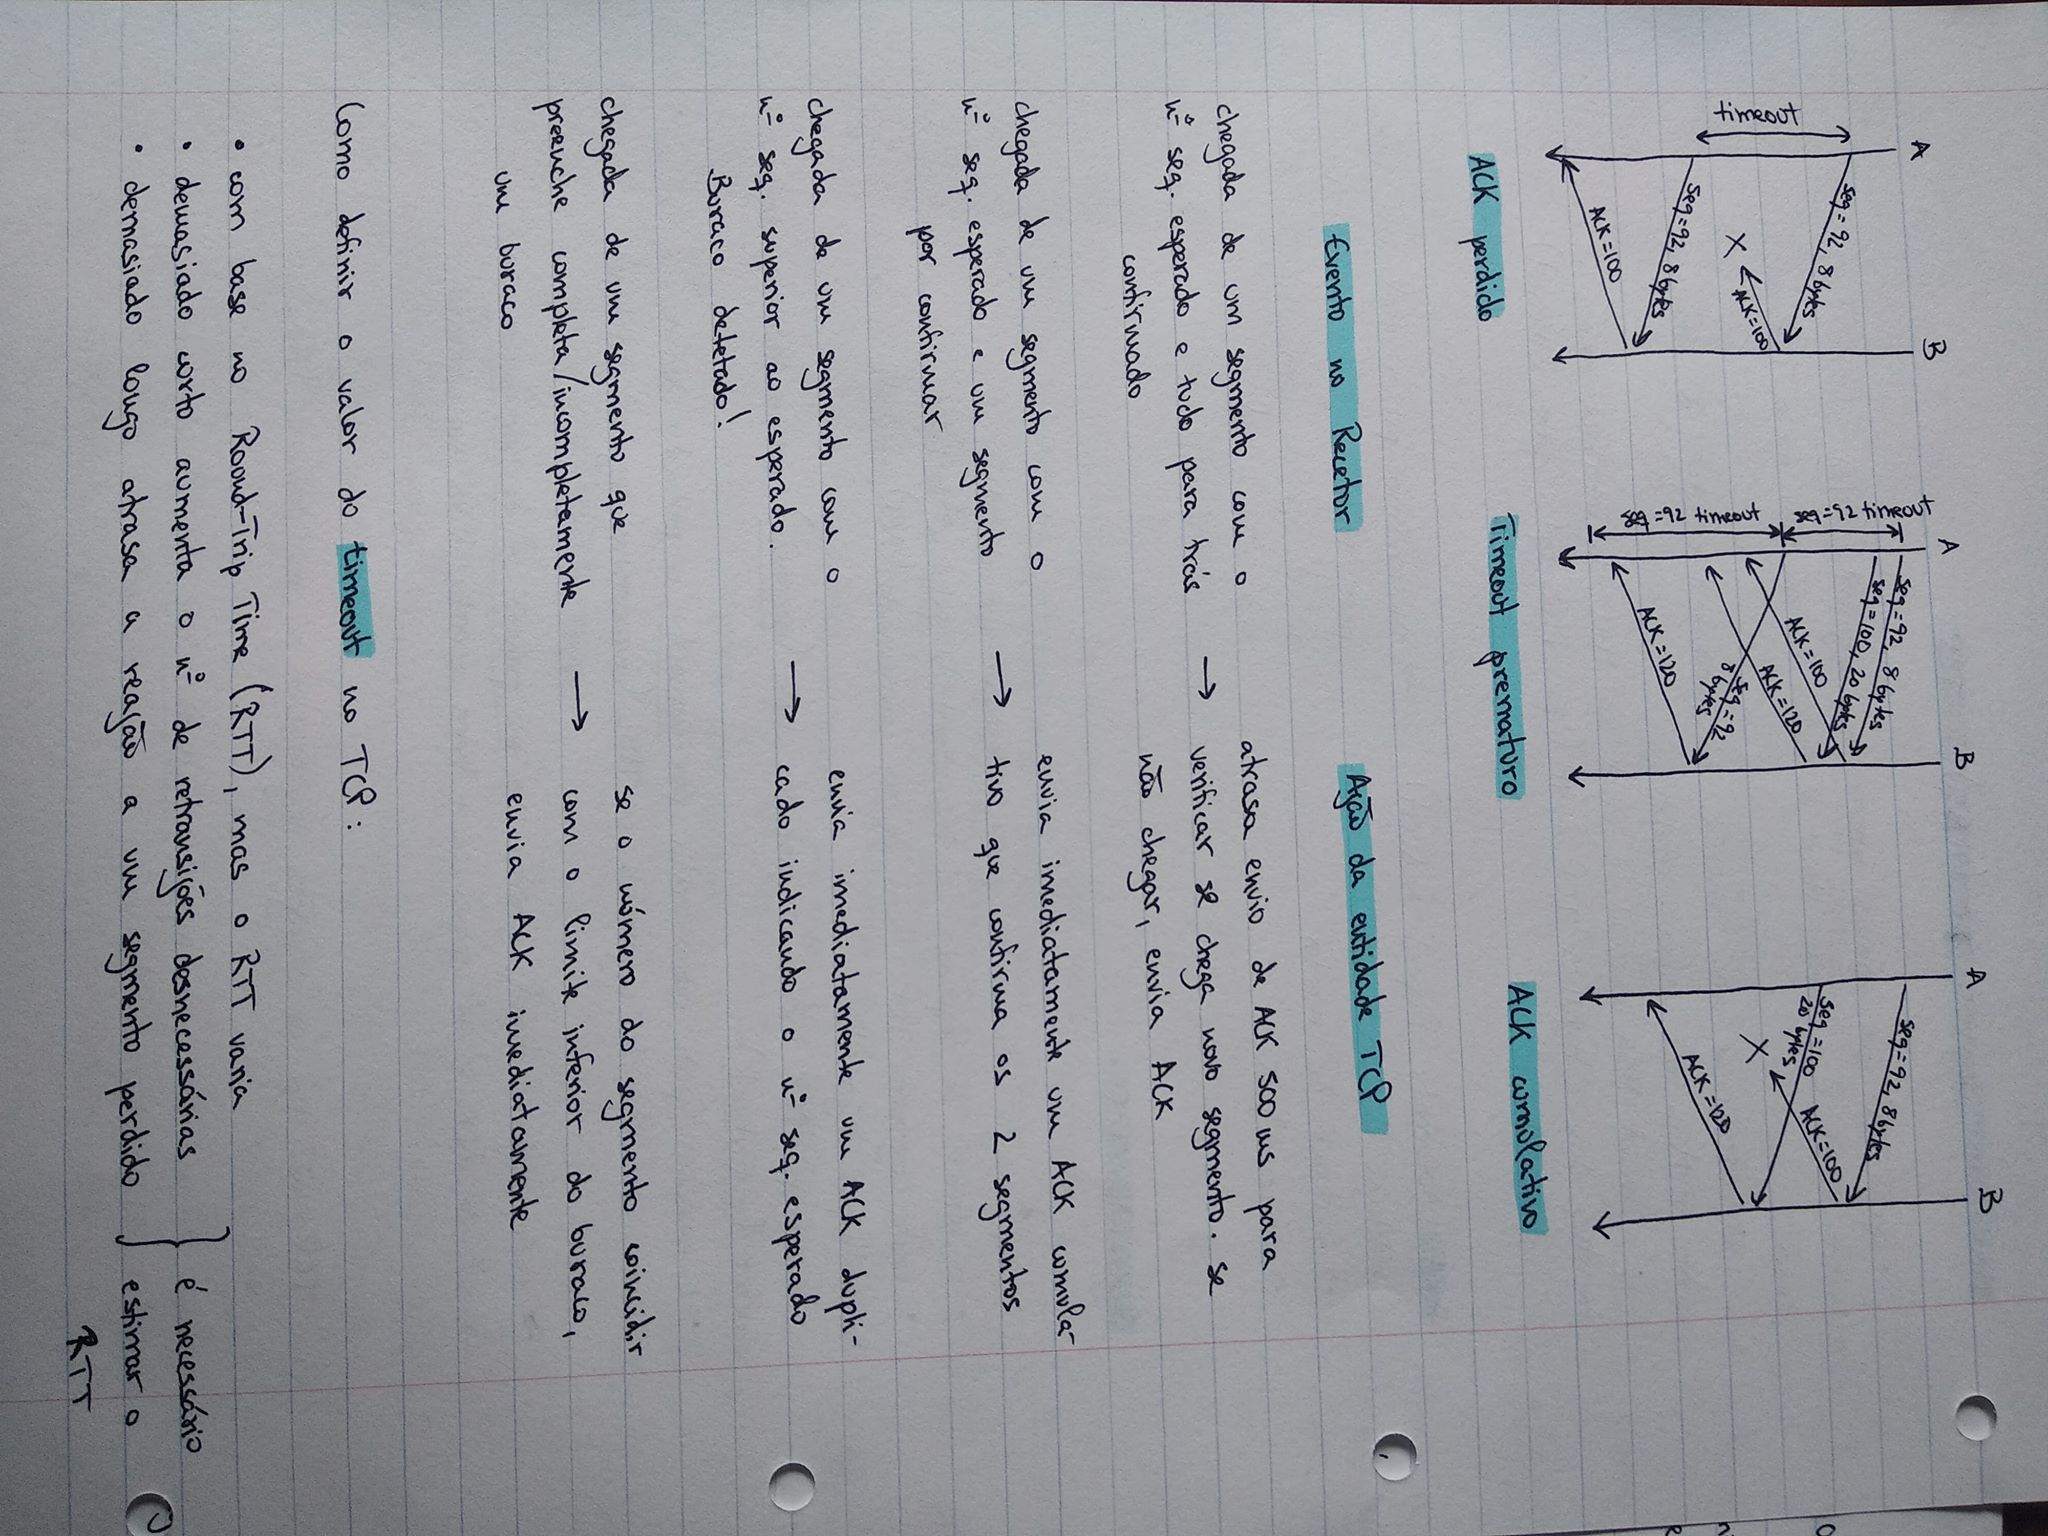 A B
seq=92, 8 bytes
timeout
X ACK=100
seq=92, 8 bytes
ACK=100
ACK perdido
A B
seq=92 timeout
seq=92, 8 bytes
seq=100, 20 bytes
ACK=100
ACK=120
seq=92 timeout
seq=92
8 bytes
ACK=120
Timeout prematuro
A B
seq=92, 8 bytes
seq=100
20 bytes
ACK=100
X
ACK=120
ACK comulativo
Evento no Recetor
Ação da entidade TCP
chegada de um segmento com o
nº seq. esperado e tudo para trás
confirmado
→
atrasa envio de ACK 500 ms para
verificar se chega novo segmento. se
não chegar, envia ACK
chegada de um segmento com o
nº seq. esperado e um segmento
por confirmar
→
envia imediatamente um ACK comula-
tivo que confirma os 2 segmentos
chegada de um segmento com o
nº seq. superior ao esperado.
Buraco detetado!
→
envia imediatamente um ACK dupli-
cado indicando o nº seq. esperado
chegada de um segmento que
preenche completa/incompletamente
um buraco
→
se o número do segmento coincidir
com o limite inferior do buraco,
envia ACK imediatamente
Como definir o valor do timeout no TCP:
• com base no Round-Trip Time (RTT), mas o RTT varia
• demasiado curto aumenta o nº de retransições desnecessárias
• demasiado longo atrasa a reação a um segmento perdido
é necessário
estimar o
RTT